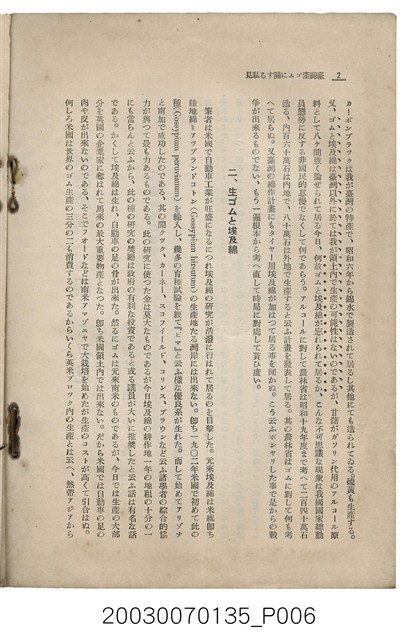 2　臺灣産ゴムに關する私見
カーボンブラックは我が臺灣の特産で、昭和六年から錦水で製造されて居るし其他にても造られてゐる、硫黄も生産する。
又、ゴムと埃及綿は臺灣以外に於ては我が領土内で生産の可能性はないのであるが、甘蔗がガソリン代用のアルコール原
料として八ヶ間敷く論ぜられて居る今日、何故ゴムと埃及綿が忘れられて居るか、こんな不可思議な現象は我國國家總動
員態勢に反する非國民的怠慢でなくして何であらう。アルコールに對して農林省は昭和十九年度まで考へて二百四十萬石
造る、内百六十萬石は内地で、八十萬石は外地で生産すると云ふ計畫を發表して居る。其の農林省はゴムに對して何も考
へて居らぬ。又臺灣の綿作計畫にもタイヤー用埃及綿が加はつて居る事を聞かぬ。こう云ふボンヤリした事で是からの戰
爭が出來るものでない、もう一遍根本から考へ直して時局に對處して貰ひ度い。
二、生ゴムと埃及綿
筆者は米國で自動車工業が旺盛になるにつれ埃及綿の研究が活潑に行はれて居るのを目撃した。元來埃及綿は米綿卽ち
陸地綿=アップランドコートン(Gossypium hirsutum)の生産地たる洲岸には出來ない。卽ち一九〇二年米國で初めて此の
種(Gossypium peruvianum)を輸入し、幾多の育種試驗を經て
と云ふ樣な優良系が生れた。而して始めてアリゾナ
と南加で成功したのである、其の間クック、カーネー、スコフィールド、コリンス、ブラウンなど云ふ諸學者の綜合的協
力が與つて最も力あるものである。此の研究に使つた金は莫大なものであるが今日埃及綿の耕作地一年の地租の十分の一
にも當らんと云ふから、此の種の研究の奬勵は政府の有利な投資であると或る議員が大いに推奬したと云ふ話は有名な話
である。かくして埃及綿は生れ、自動車の足の骨が出來た。然るにゴムは元來南米のものであるが、今日では生産の大部
分を英國の企業家に奪はれて馬來の最大重要物産となつた。卽ち米國領土内では出來ない。だから米國では自動車の足の
肉や皮が出來ないのである、そこでフォードなどは南米アマゾニヤで大栽培を始めたが生産のコストが高くて引合はぬ。
何しろ米國は世界のゴム生産の三分の二も消費するのであるからいくら英米ブロック内の生産とは云へ、熱帶アジアから
20030070135_P006